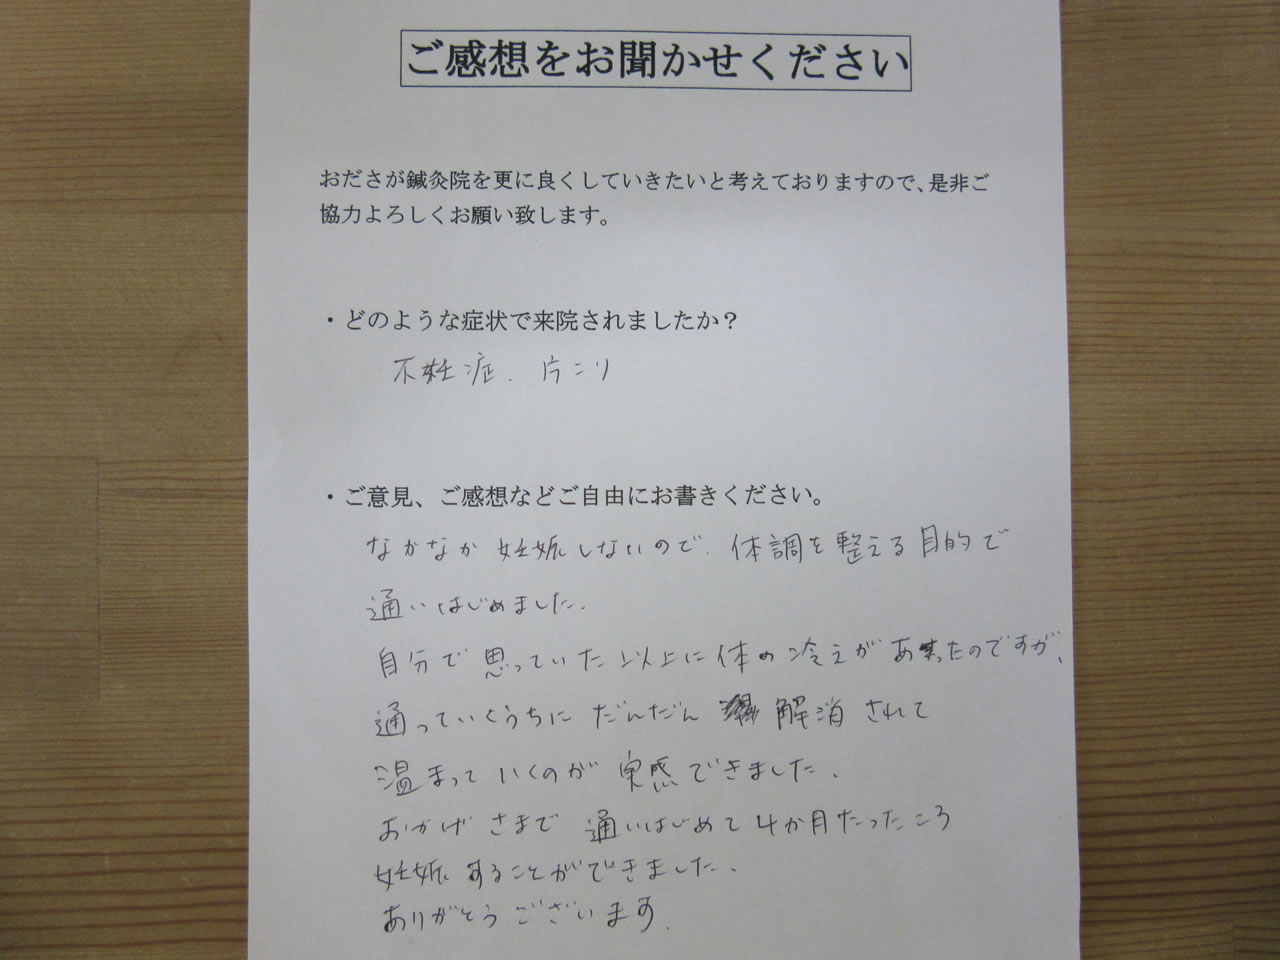 ご感想をお聞かせください
おださが鍼灸院を更に良くしていきたいと考えておりますので、是非ご
協力よろしくお願い致します。
・どのような症状で来院されましたか？
不妊症、片こり
・ご意見、ご感想などご自由にお書きください。
なかなか妊娠しないので、体調を整える目的で
通いはじめました。
自分で思っていた以上に体の冷えがあったのですが、
通っていくうちにだんだん解消されて
温まっていくのが実感できました。
おかげさまで通いはじめて4か月たったころ
妊娠することができました。
ありがとうございます。